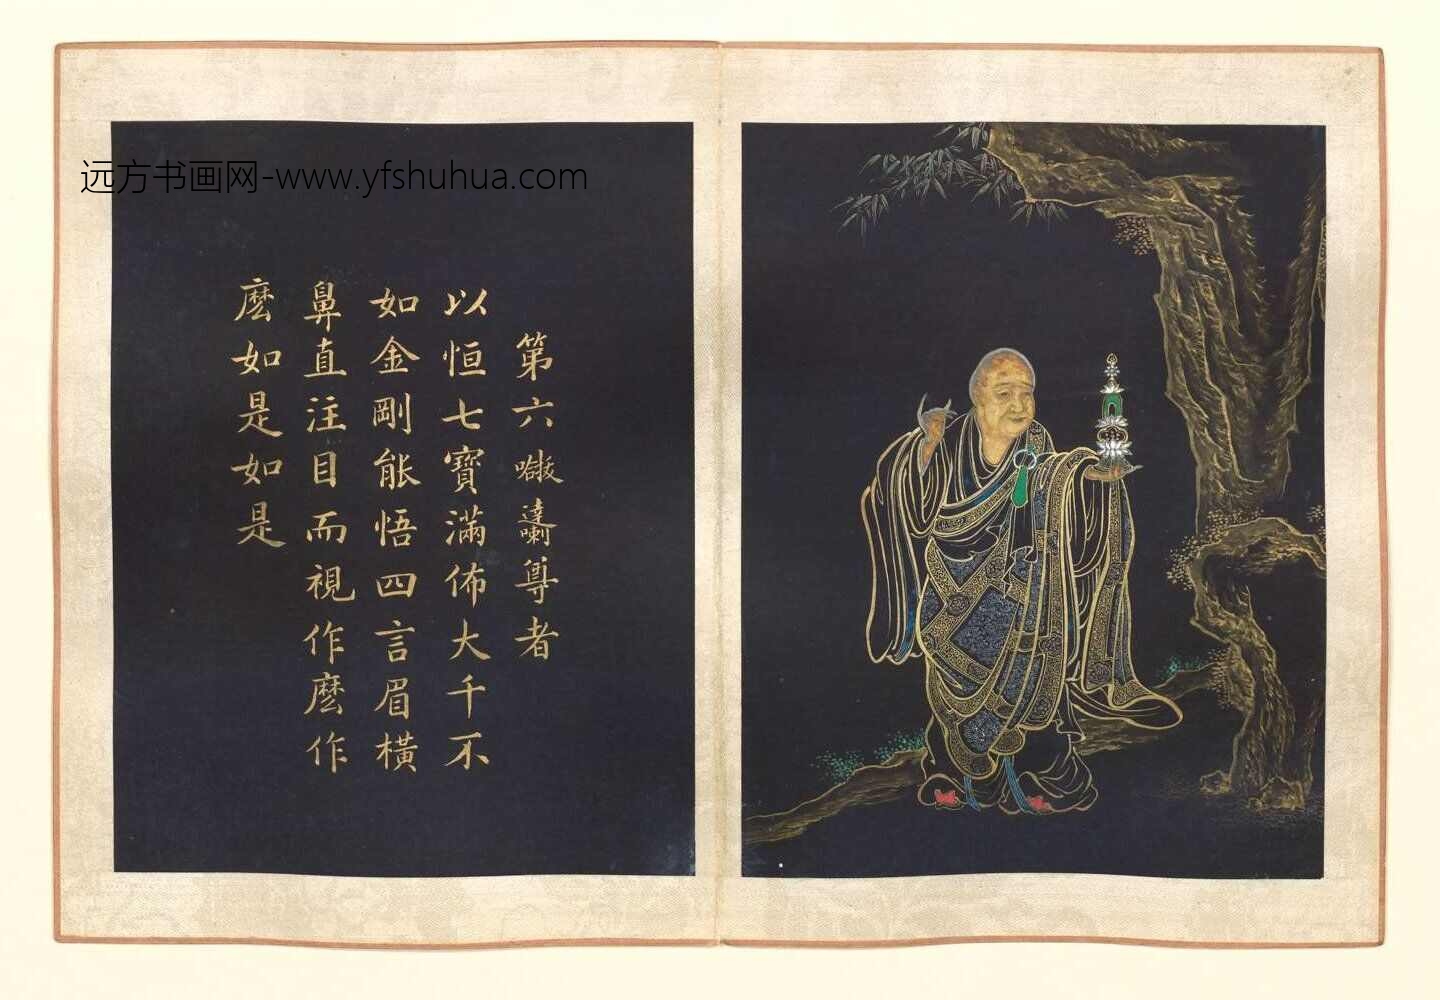 远方书画网-www.yfshuhua.com
第六達喇尊者
以恒七寶滿佈大千不
如金剛能悟四言眉橫
鼻直注目而視作麽作
麽如是如是